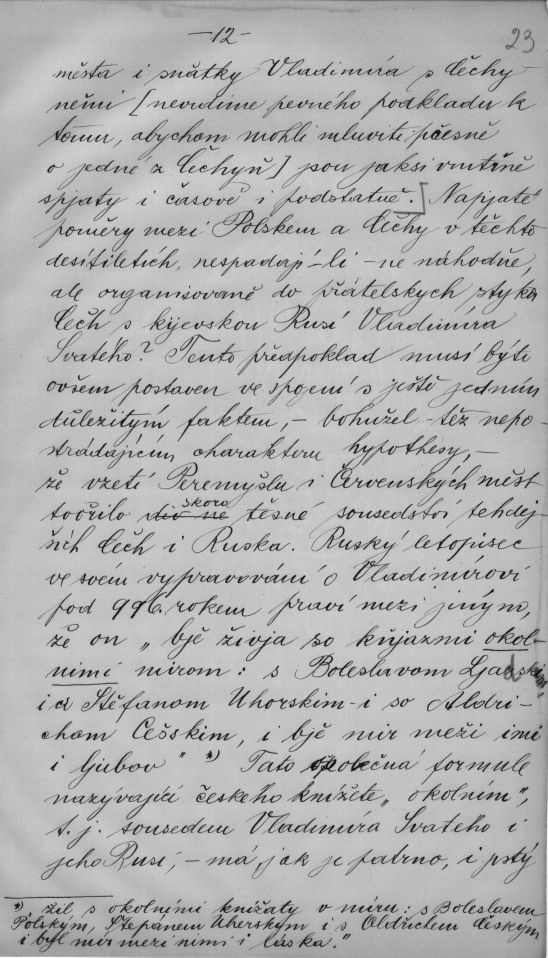 -12-
23
města i sňatky Vladimíra s Čechy-
němi [nevidíme pevného podkladu k
tomu, abychom mohli mluviti přesně
o jedné z Čechyň] jsou jaksi vnitřně
spjaty i časově i podstatně.] Napjaté
poměry mezi Polskem a Čechy v těchto
desítiletích, nespadají-li -ne náhodně,
ale organisovaně do přátelských styků
Čech s kijevskou Rusí Vladimíra
Svatého? Tento předpoklad musí býti
ovšem postaven ve spojení s ještě jedním
důležitým faktem, - bohužel -též nepo-
strádajícím charakteru hypothesy, -
že vzetí Peremyšlu i Červenských měst
tvořilo div ne skoro těsné sousedství tehdej-
ších Čech i Ruska. Ruský letopisec
ve svém vypravování o Vladimirovi
pod 996. rokem praví mezi jiným,
že on „bjě živja so knjazmi okol-
nimi mirom: s Boleslavom Ljadskim
i s Stěfanom Uhorskim-i so Aldri-
chom Češskim, i bjě mir meži imi
i ljubov" *) Tato společná formule
nazývající českého knížete „okolním",
t.j. sousedem Vladimíra Svatého i
jeho Rusi, - má, jak je patrno, i jistý
*) žil s okolními knížaty v míru: s Boleslavem
Polským, Štěpanem Uherským i s Oldřichem českým
i byl mír mezi nimi i láska."